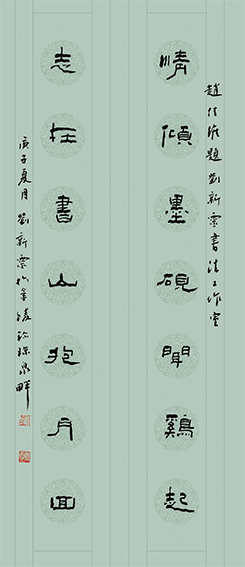 趙佳雅題劉新宗書法工作室
情傾墨硯聞鷄起
志在書山抱月回
庚子夏月劉新宗於